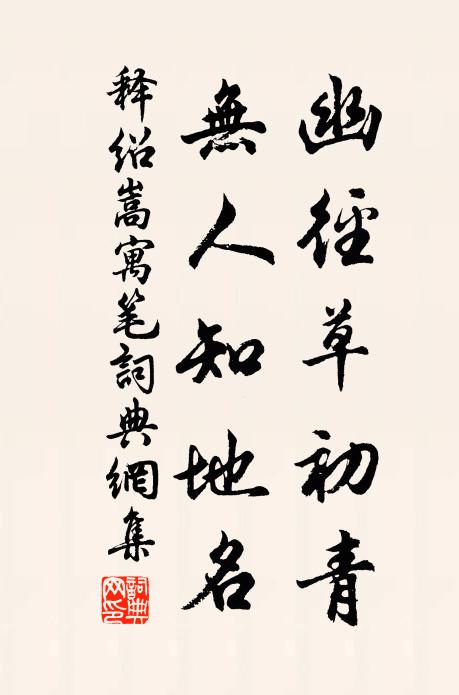 幽徑草初青
無人知地名
释绍嵩寓笔詞典網集
詞典网印